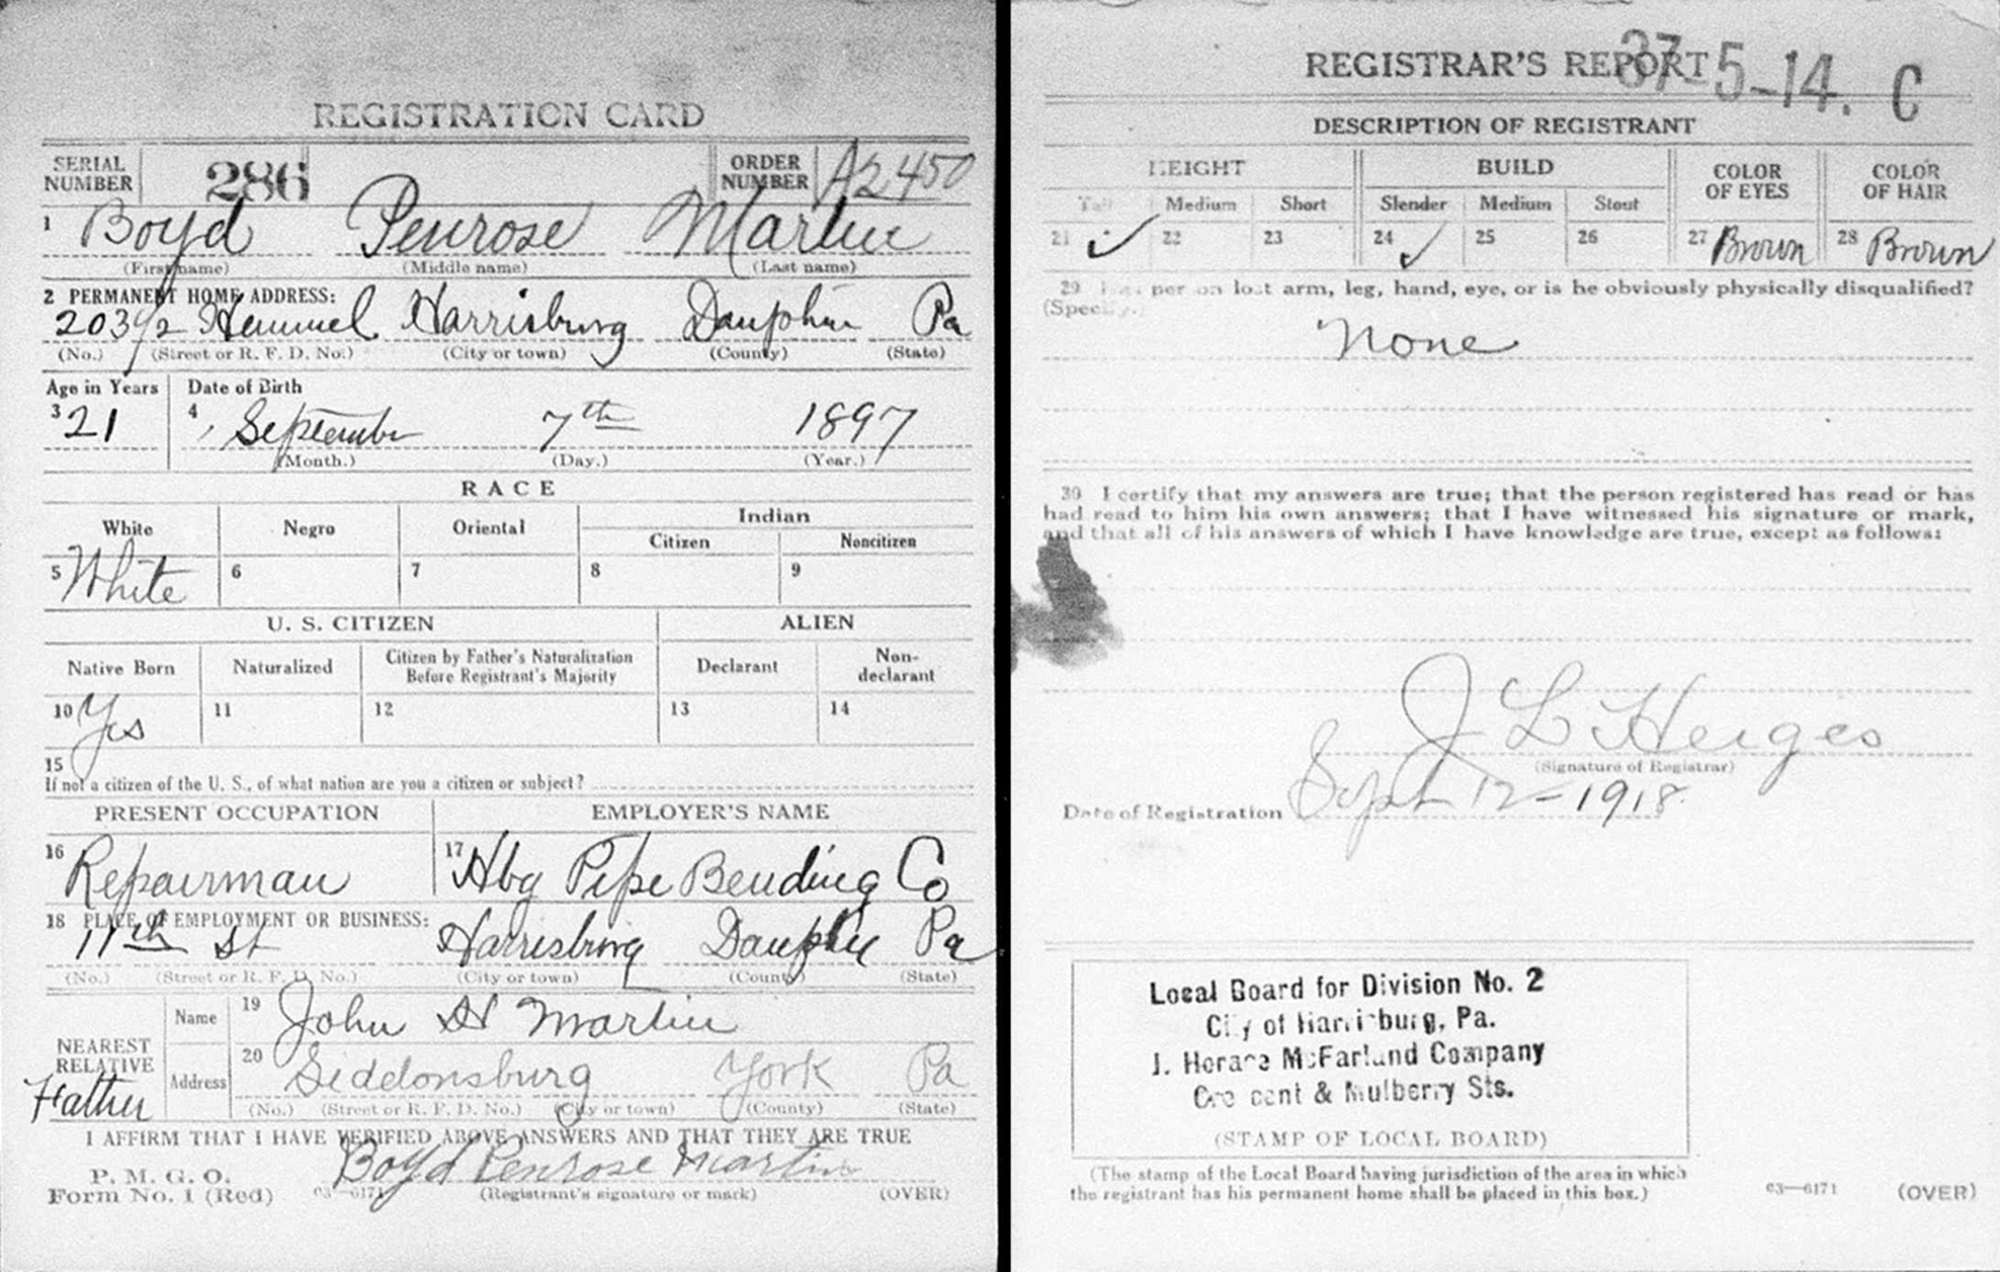 REGISTRATION CARD
SERIAL NUMBER 286 ORDER NUMBER A2450
1 Boyd Penrose Martin
(First name) (Middle name) (Last name)
2 PERMANENT HOME ADDRESS:
203 1/2 Hummel Harrisburg Dauphin Pa
(No.) (Street or R. F. D. No.) (City or town) (County) (State)
Age in Years Date of Birth
3 21 4 September 7th 1897
(Month.) (Day.) (Year.)
RACE
White Negro Oriental Indian
Citizen Noncitizen
5 White 6 7 8 9
U. S. CITIZEN ALIEN
Native Born Naturalized Citizen by Father's Naturalization Before Registrant's Majority Declarant Non-declarant
10 Yes 11 12 13 14
15
If not a citizen of the U. S., of what nation are you a citizen or subject?
PRESENT OCCUPATION EMPLOYER'S NAME
16 Repairman 17 Hbg Pipe Bending Co
18 PLACE OF EMPLOYMENT OR BUSINESS:
11th St Harrisburg Dauphin Pa
(No.) (Street or R. F. D. No.) (City or town) (County) (State)
NEAREST RELATIVE Father
Name 19 John H Martin
Address 20 Siddonsburg York Pa
(No.) (Street or R. F. D. No.) (City or town) (County) (State)
I AFFIRM THAT I HAVE VERIFIED ABOVE ANSWERS AND THAT THEY ARE TRUE
P. M. G. O.
Form No. 1 (Red) 03—6171 Boyd Penrose Martin
(Registrant's signature or mark) (OVER)
REGISTRAR'S REPORT 37-5-14. C
DESCRIPTION OF REGISTRANT
HEIGHT BUILD COLOR OF EYES COLOR OF HAIR
Tall Medium Short Slender Medium Stout
21 ✓ 22 23 24 ✓ 25 26 27 Brown 28 Brown
29 Has person lost arm, leg, hand, eye, or is he obviously physically disqualified?
(Specify.)
None
30 I certify that my answers are true; that the person registered has read or has
had read to him his own answers; that I have witnessed his signature or mark,
and that all of his answers of which I have knowledge are true, except as follows:
J L Heiges
(Signature of Registrar)
Date of Registration Sept 12-1918
Local Board for Division No. 2
City of Harrisburg, Pa.
J. Horace McFarland Company
Crescent & Mulberry Sts.
(STAMP OF LOCAL BOARD)
(The stamp of the Local Board having jurisdiction of the area in which
the registrant has his permanent home shall be placed in this box.)
03—6171 (OVER)